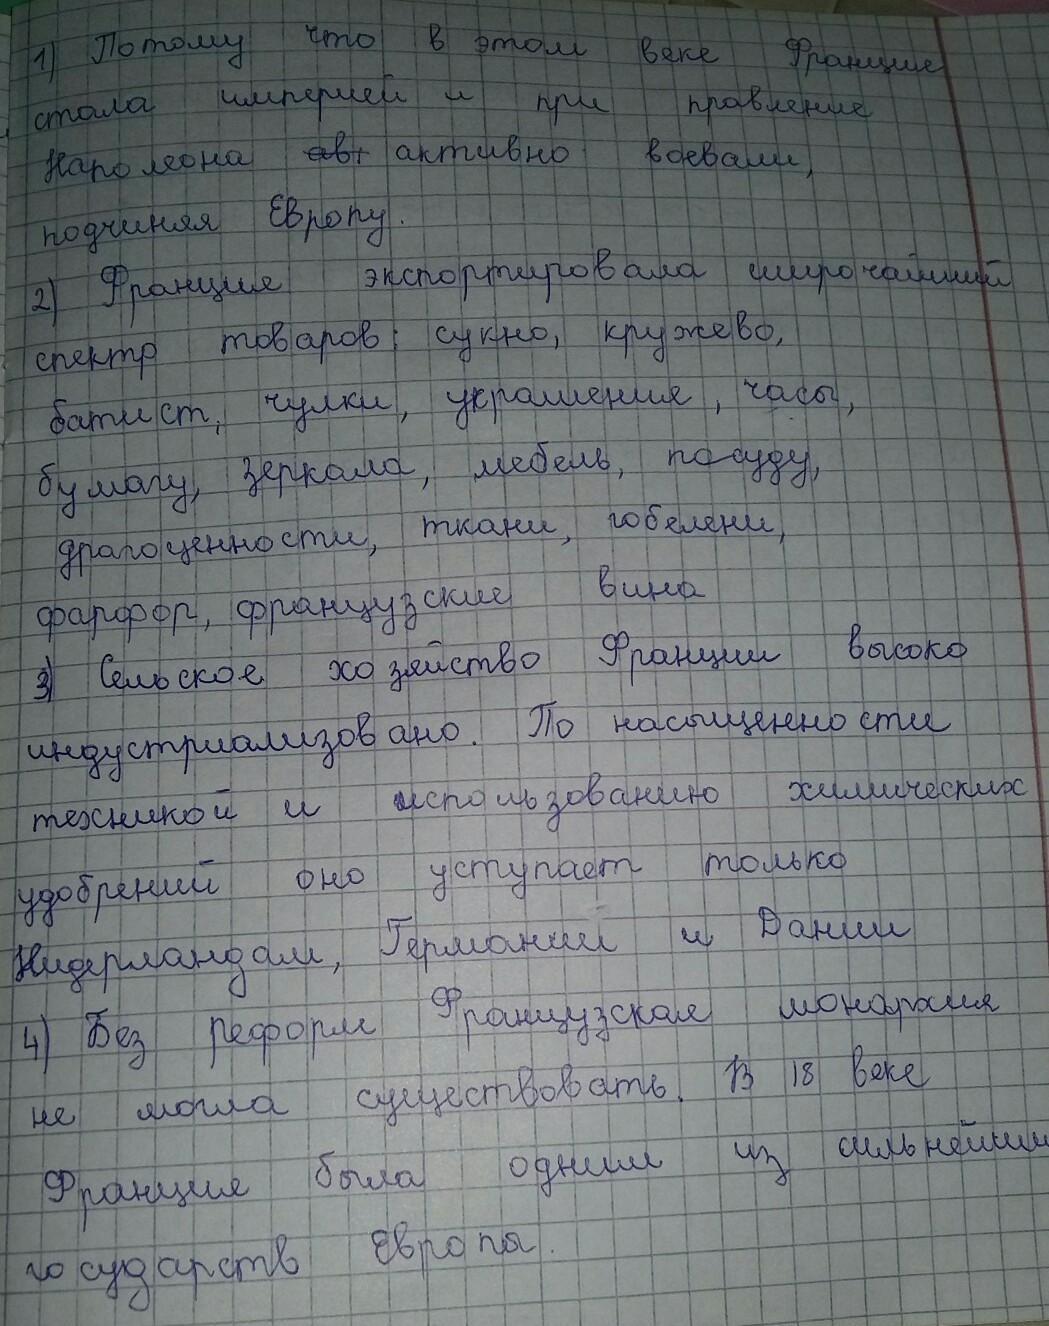 1) Потому что в этом веке Франция
стала империей и при правление
Наполеона активно воевали,
подчиняя Европу.
2) Франция экспортировала широчайший
спектр товаров: сукно, кружево,
батист, чулки, украшения, часы,
бумагу, зеркала, мебель, посуду,
драгоценности, ткани, гобелени,
фарфор, французские вина
3) Сельское хозяйство Франции высоко
индустриализовано. По насыщенности
техникой и использованию химических
удобрений оно уступает только
Нидерландам, Германии и Дании
4) Без реформ Французская монархия
не могла существовать. В 18 веке
Франция была одним из сильнейших
государств Европы.